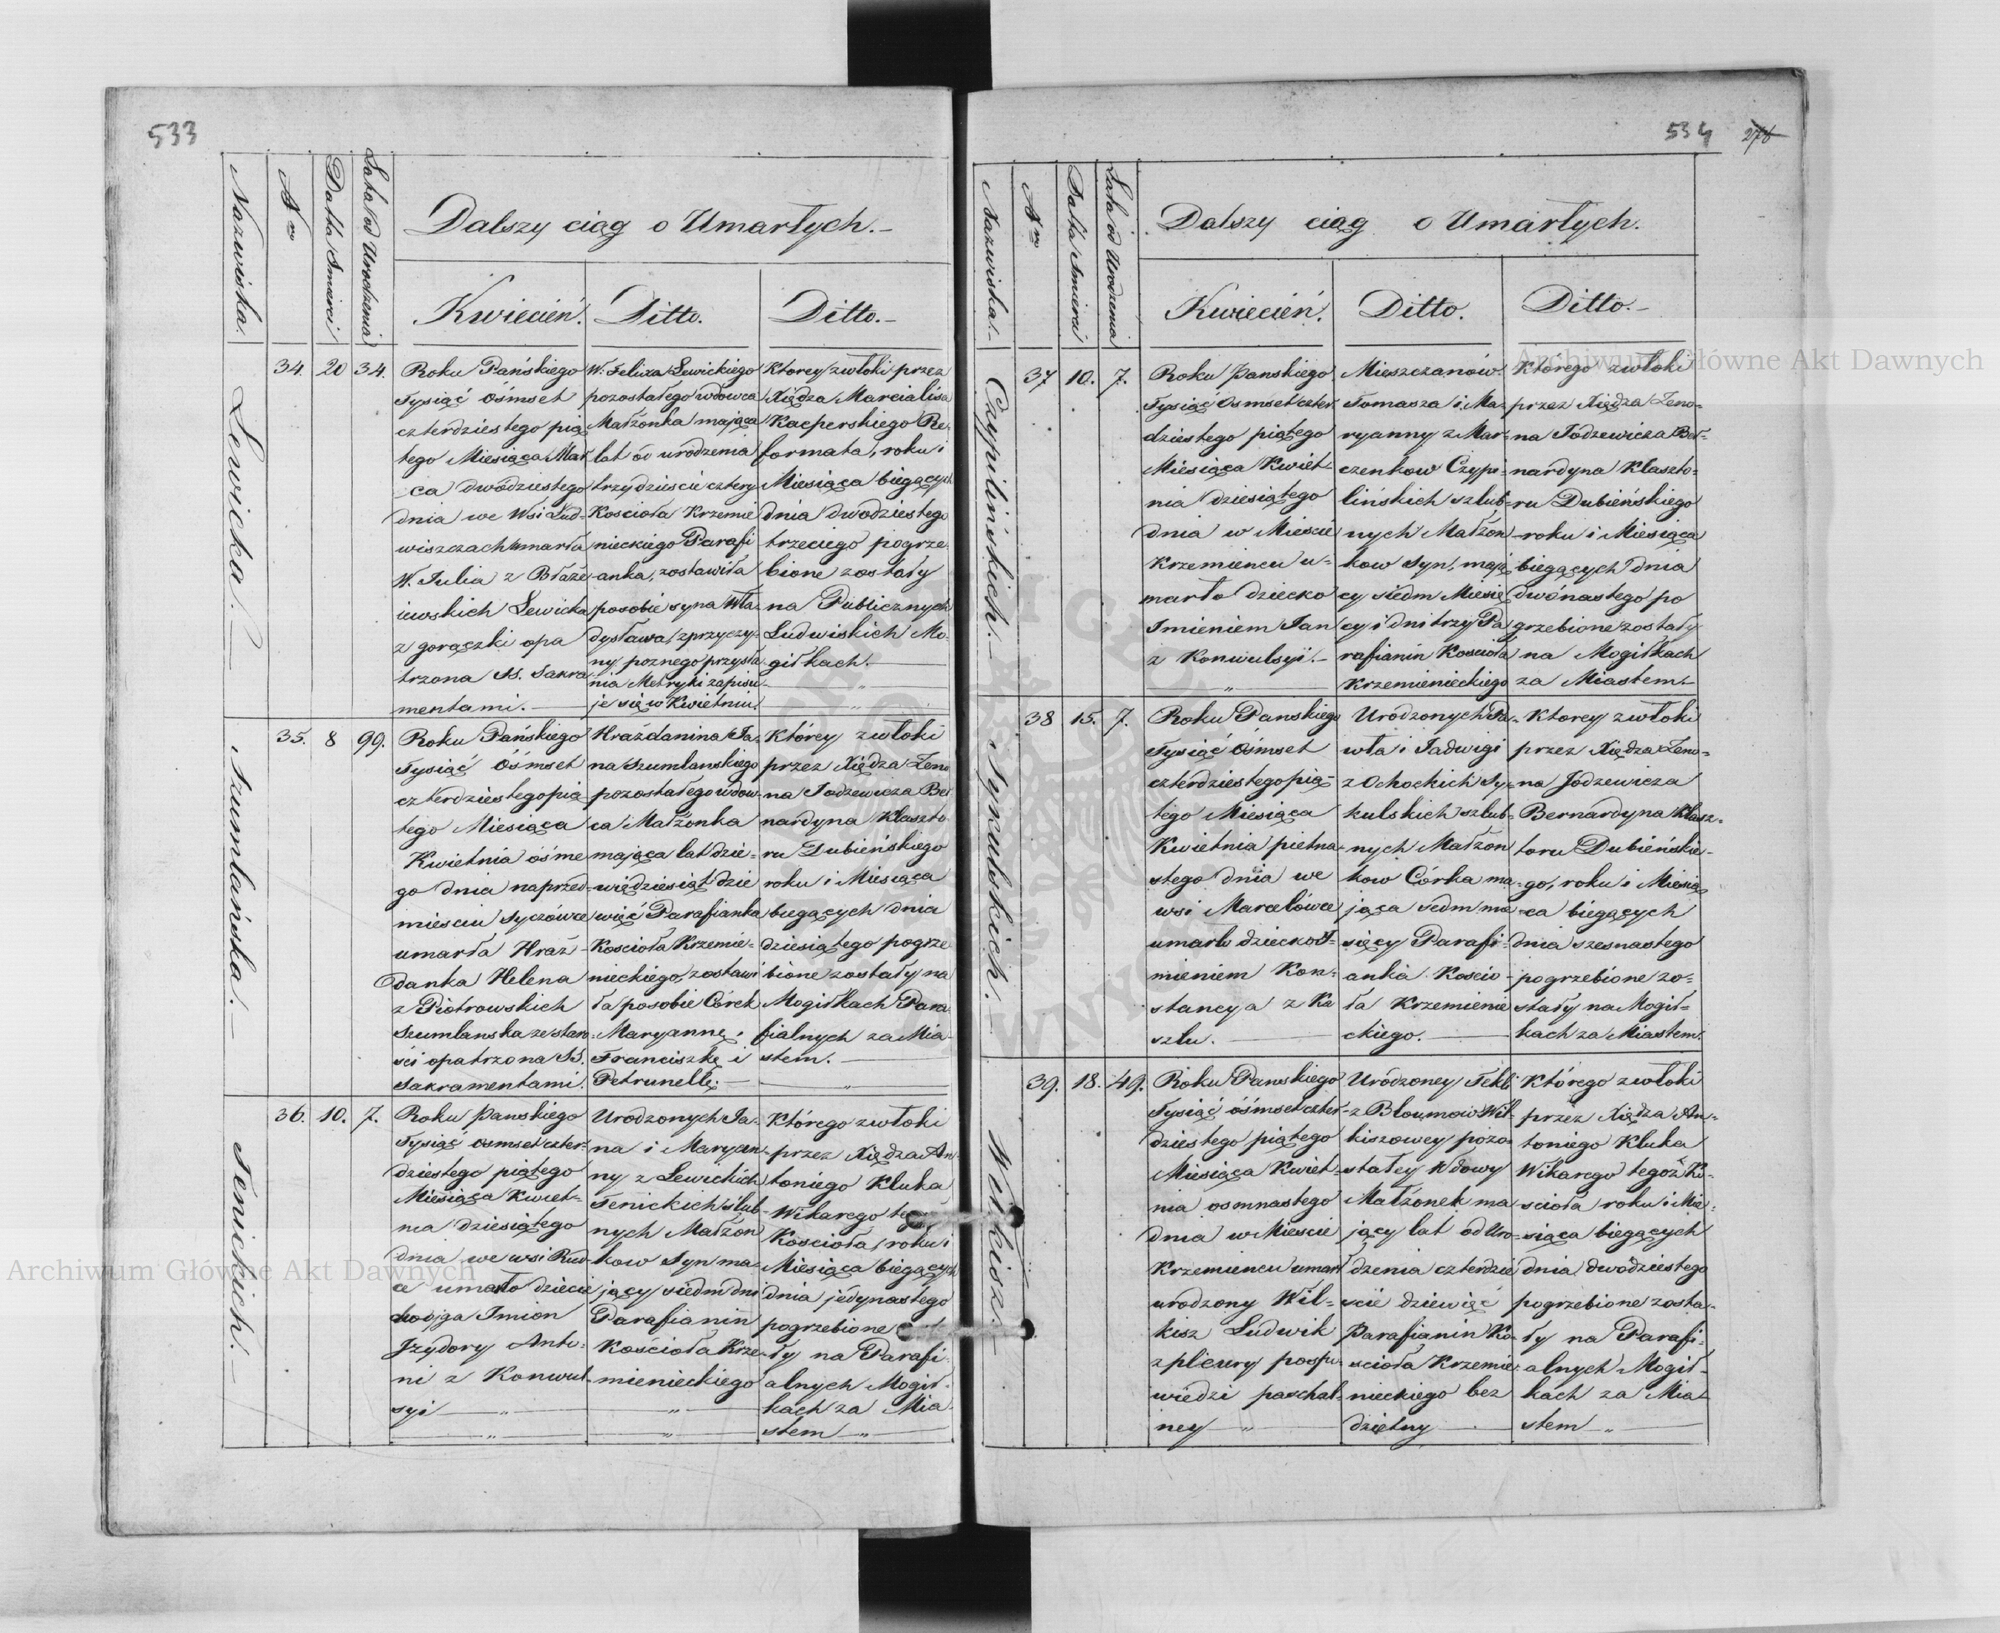 533
Nazwiska.
Nro
Datta Smierci
Lata od Urodzenia
Dalszy ciąg o Umarłych.-
Kwiecień.
Ditto.
Ditto.-
Lewicka.
34. 20 34.
Roku Pańskiego
tysiąć óśmset
czterdziestego pią
tego Miesiąca Mar
ca dwódziestego
dnia we Wsi Lud-
wiszczach umarła
W. Julia z Błaże-
iewskich Lewicka
z gorączki opa
trzona SS. Sakra
mentami.-
W. Felixa Lewickiego
pozostałego wdowca
Małżonka mająca
lat od urodzenia
trzydzieście cztery
Kościoła Krzemie
nieckiego Parafi
anka, zostawiła
posobie syna Wła-
dysława, z przyczy-
ny poznego przysła
nia Metryki zapisu-
je się w Kwietniu
Ktorey zwłoki przez
Xiędza Marcialisa
Kacperskiego Re-
formata, roku i
Miesiąca biegących
dnia dwodziestego
trzeciego pogrze-
bione zostały
na Publicznych
Ludwiskich Mo-
giłkach.
Szumlańska.-
35. 8 99.
Roku Pańskiego
tysiąć óśmset
czterdziestego pią
tego Miesiąca
Kwietnia óśme
go dnia naprzed-
mieściu Syczówce
umarła Hraż-
danka Helena
z Piotrowskich
Szumlanska ze staro-
ści opatrzona SS.
Sakramentami.
Hrażdanina Ja-
na Szumlanskiego
pozostałego wdow-
ca Małżonka
mająca lat dzie-
więdziesiąt dzie
więć Parafianka
Kościoła Krzemie-
nieckiego, zostawi
ła posobie Córek
Maryannę,
Franciszkę i
Petrunellę.-
Którey zwłoki
przez Xiędza Zeno
na Jodzewicza Ber
nardyna Klaszto
ru Dubieńskiego
roku i Miesiąca
biegących dnia
dziesiątego pogrze
bione zostały na
Mogiłkach Para-
fialnych za Mia-
stem.
Tenickich.-
36. 10. 7.
Roku Panskiego
tysiąc osmset czter-
dziestego piątego
Miesiąca Kwiet-
nia dziesiątego
dnia we wsi Rud-
ce umarło dziecie
dwojga Imion
Jzydory Anto-
ni z Konwul-
syi
Urodzonych Ja-
na i Maryan-
ny z Lewickich
Tenickich ślub-
nych Małżon
kow Syn ma-
jący siedm dni
Parafianin
Kościoła Krze-
mienieckiego
Którego zwłoki
przez Xiędza An-
toniego Kluka
Wikarego
Kościoła, roku i
Miesiąca biegących
dnia jedynastego
pogrzebione
ły na Parafi-
alnych Mogił-
kach za Mia-
stem
534 278
Nazwiska.-
Nro
Datta Smierci
Lata od Urodzenia
Dalszy ciąg o Umarłych.
Kwiecień.
Ditto.
Ditto.-
Czypilińskich.-
37 10. 7.
Roku Panskiego
tysiąć osmset czter
dziestego piątego
Miesiąca Kwiet-
nia dziesiątego
dnia w Mieście
Krzemiencu u-
marło dziecko
Imieniem Jan
z Konwulsyi.-
Mieszczanów
Tomasza i Ma-
ryanny z Mar-
czenkow Czypi-
lińskich szlub-
nych Małżon-
kow syn, mają
cy siedm Miesię
cy i dni trzy Pa
rafianin Kościoła
Krzemienieckiego
Którego zwłoki
przez Xiędza Zeno-
na Jodzewicza Ber-
nardyna Klaszto-
ru Dubieńskiego
roku i Miesiąca
biegących dnia
dwónastego po
grzebione zostały
na Mogiłkach
za Miastem.-
Sykulskich.-
38 15. 7.
Roku Panskiego
tysiąć óśmset
czterdziestego pią-
tego Miesiąca
Kwietnia pietna-
stego dnia we
wsi Marcelówce
umarło dziecko I-
mieniem Kon-
stancya z Ka
szlu.
Uródzonych Pa-
wła i Jadwigi
z Ochockich Sy-
kulskich szlub-
nych Małżon
ków Córka ma-
jąca siedm mie-
sięcy Parafi-
anka Kościo-
ła Krzemienie
ckiego.
Ktorey zwłoki
przez Xiędza Zeno-
na Jodzewicza
Bernardyna Klasz-
toru Dubieńskie-
go, roku i Miesią-
ca biegących
dnia szesnastego
pogrzebione zo-
stały na Mogił-
kach za Miastem.
Wilkisz.-
39. 18. 49.
Roku Panskiego
tysiąć óśmset czter-
dziestego piątego
Miesiąca Kwiet-
nia osmnastego
dnia w Mieście
Krzemiencu umarł
urodzony Wil-
kisz Ludwik
z pleury pospo-
wiedzi paschal-
ney
Uródzoney Tekli
z Bloumow Wil-
kiszowey pozo-
stałey Wdowy
Małżonek ma-
jący lat od Uro-
dzenia czterdzie
ście dziewięć
Parafianin Ko-
ścioła Krzemie-
nieckiego bez
dzietny
Którego zwłoki
przez Xiędza An-
toniego Kluka
Wikarego tegoż Ko-
ścioła roku i Mie-
siąca biegących
dnia dwodziestego
pogrzebione zosta-
ły na Parafi-
alnych Mogił-
kach za Mia-
stem
Archiwum Główne Akt Dawnych
Archiwum Główne Akt Dawnych